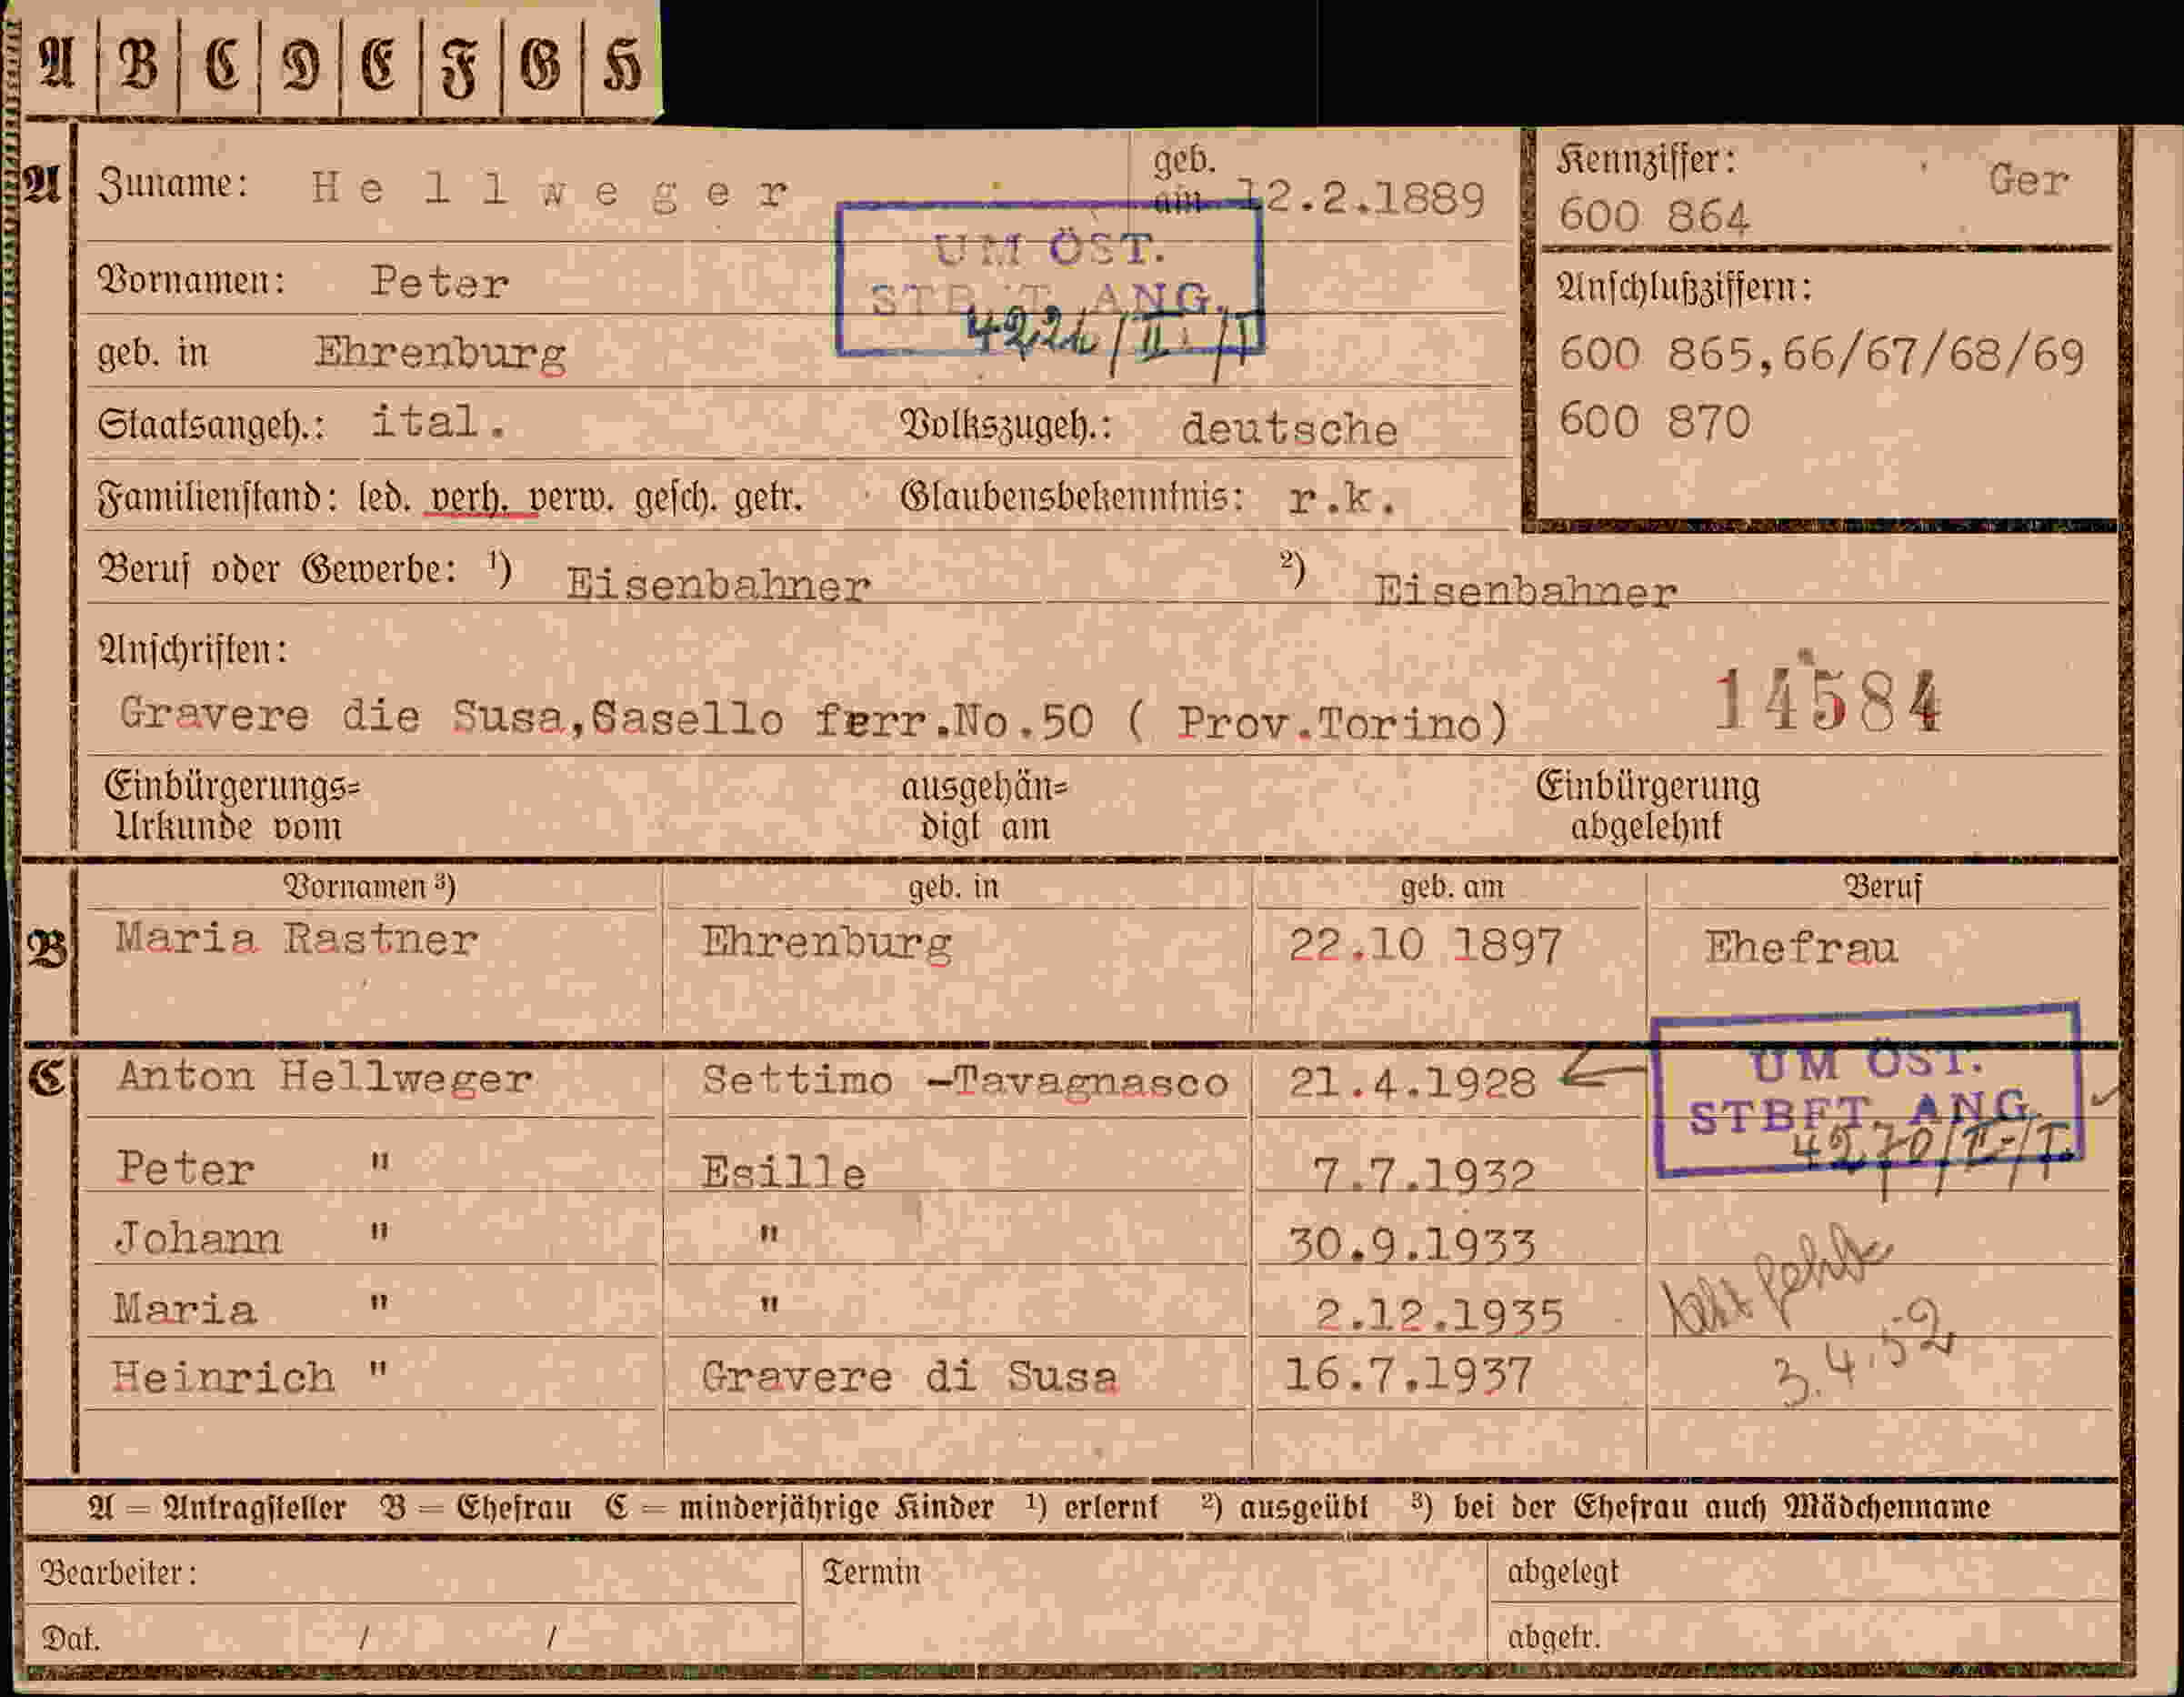 A B C D E F G H
A Zuname: Hellweger geb. am 12.2.1889
Kennziffer: Ger
600 864
UM ÖST.
STBFT. ANG.
Vornamen: Peter
geb. in Ehrenburg
Anschlußziffern:
600 865,66/67/68/69
600 870
Staatsangeh.: ital. Volkszugeh.: deutsche
Familienstand: led. verh. verw. gesch. getr. Glaubensbekenntnis: r.k.
Beruf oder Gewerbe: 1) Eisenbahner 2) Eisenbahner
Anschriften:
Gravere die Susa,Sasello ferr.No.50 ( Prov.Torino) 14584
Einbürgerungs=
Urkunde vom
ausgehän=
digt am
Einbürgerung
abgelehnt
Vornamen 3) geb. in geb. am Beruf
B Maria Rastner Ehrenburg 22.10 1897 Ehefrau
C Anton Hellweger Settimo -Tavagnasco 21.4.1928
UM ÖST.
STBFT. ANG.
4270/II-/I.
Peter " Esille 7.7.1932
Johann " " 30.9.1933
Maria " " 2.12.1935
fehlt
3.4.52
Heinrich " Gravere di Susa 16.7.1937
A = Antragsteller B = Ehefrau C = minderjährige Kinder 1) erlernt 2) ausgeübt 3) bei der Ehefrau auch Mädchenname
Bearbeiter: Termin abgelegt
Dat. / / abgetr.